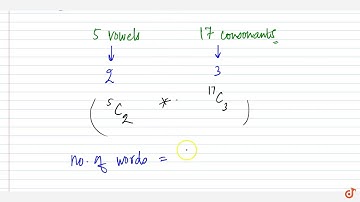 5 vowels 17 consonants
↓ ↓
2 3
( ⁵C₂ * ¹⁷C₃ )
no. of words =